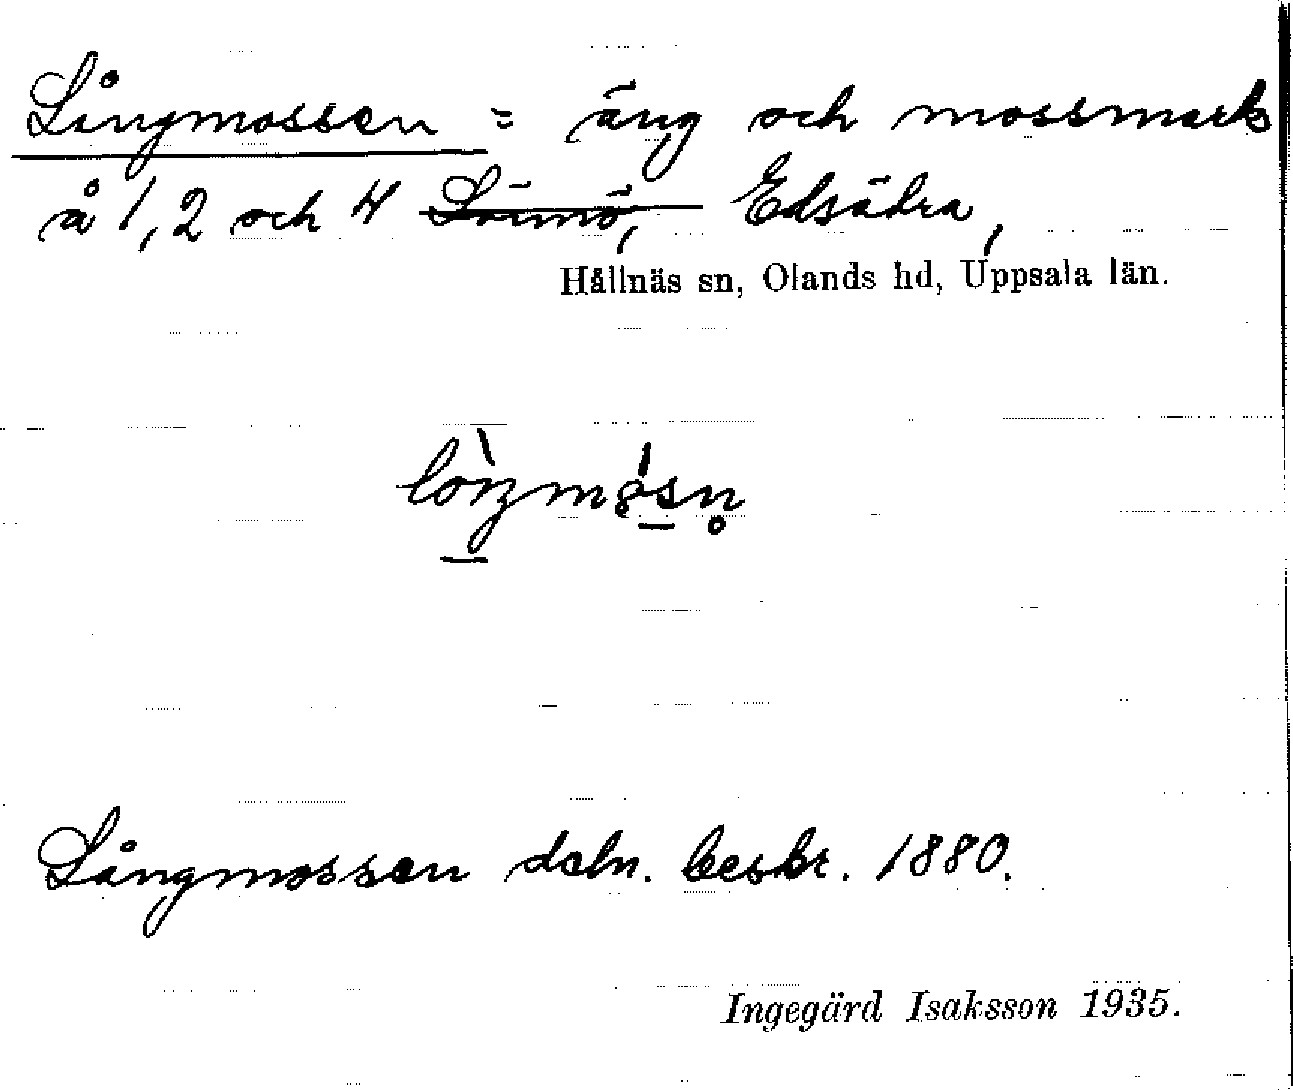 Långmossen = äng och mossmark
å 1, 2 och 4 Edsädra,
Hållnäs sn, Olands hd, Uppsala län.
Långmossen deln. beskr. 1880.
Ingegärd Isaksson 1935.